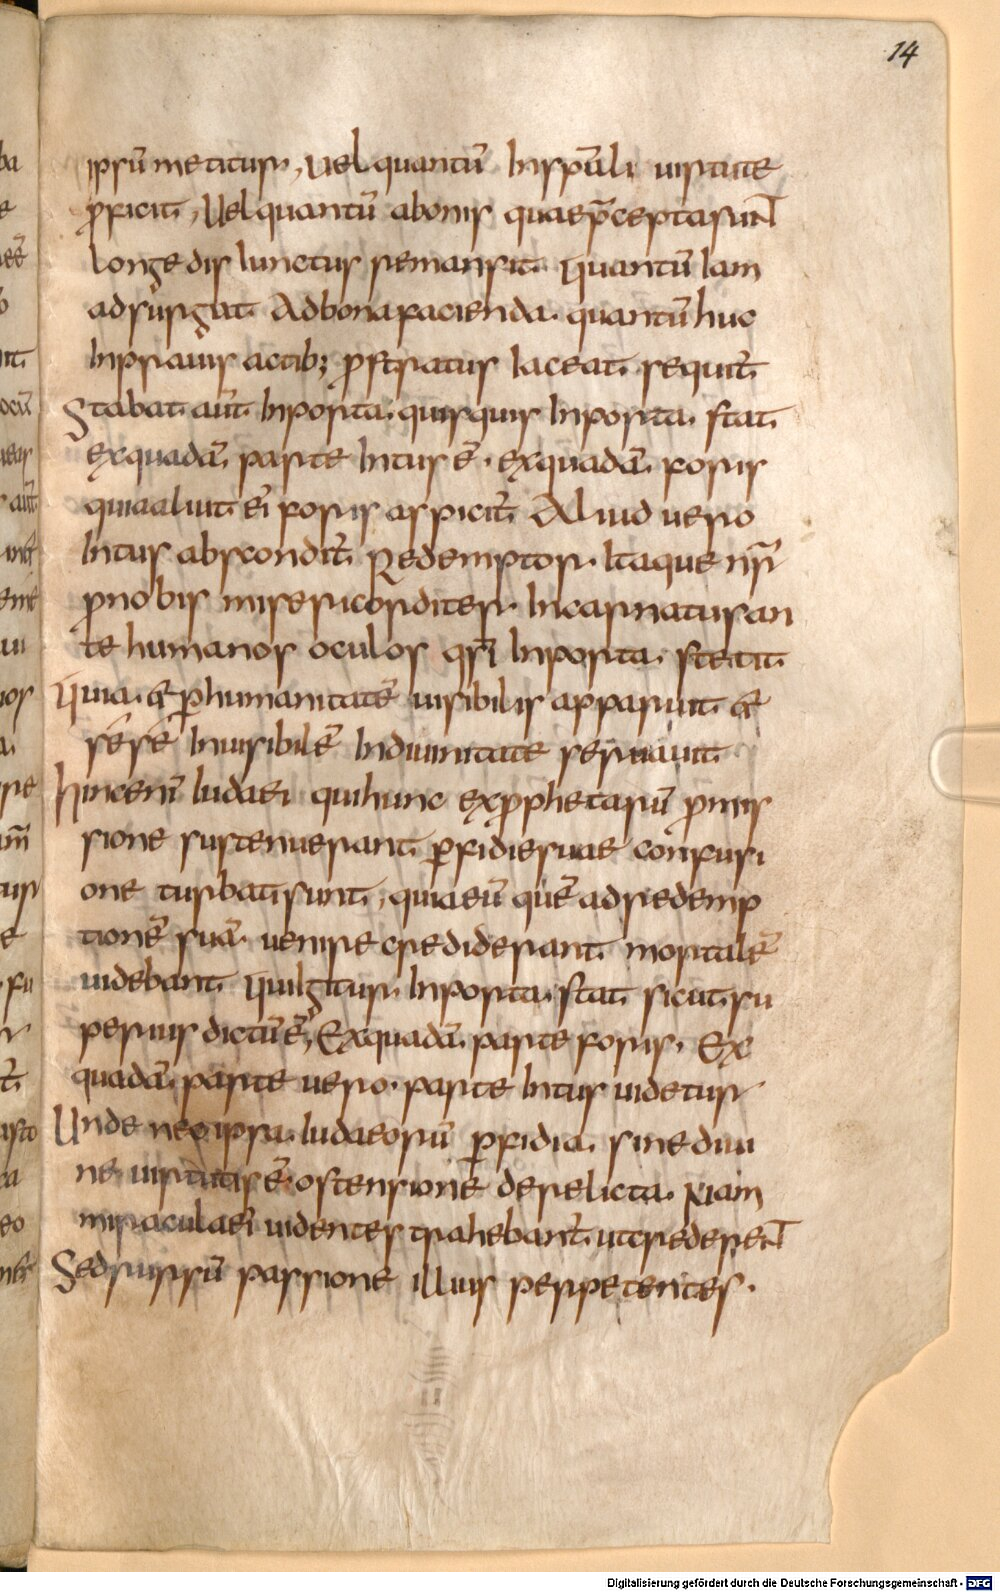 14
ipsū metitur, uel quantū in spūli uirtute
p̄ficit, Uel quantū a bonis quae p̄cepta sunt
longe disiunctus remansit. Quantū iam
ad surgat. Ad bona facienda. quantū huc
in prauis actib; p̄stratus iaceat. sequit̄
Stabat aūt in porta. quisquis in porta. stat
ex quadā parte intus ē. ex quadā foris
quia aliut ei foris aspicit̄ Aliud uero
intus abscondit̄ Redemptor. Itaque nr̄
p̄ nobis misericorditer. Incarnatus an
te humanos oculos qsi in porta. stetit
Quia. & p humanitatē uisibilis apparuit &
sēsē inuisibilē in diuinitate seruauit
hinc enī iudaei qui hunc ex p̄phetarū p̄mis
sione sustenuerant p̄fidie suae confusi
one turbati sunt, quia eū quē ad redemp
tionē suā uenire crediderant mortalē
uidebant Qui igitur. In porta. stat sicut su
perius dictū ē, Ex quadā parte foris. Ex
quadā parte uero. parte intus uidetur
Unde nec ipsa. iudaeorū p̄fidia. sine diui
ne uirtutis ē ostensione derelicta. Niam
miracula ei uidentes trahebant̄ ut crederent
Sed rursū passione illius perpetentes.
Digitalisierung gefördert durch die Deutsche Forschungsgemeinschaft - DFG